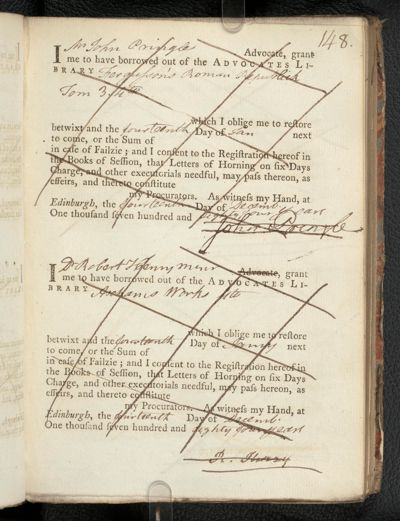 148.
I Mr John Pringle Advocate, grant
me to have borrowed out of the ADVOCATES LI-
BRARY Ferguson's Roman Republick
Tom 3. 4to
which I oblige me to reſtore
betwixt and the fourteenth Day of Jan next
to come, or the Sum of
in caſe of Failzie; and I conſent to the Regiſtration hereof in
the Books of Seſſion, that Letters of Horning on ſix Days
Charge, and other executorials needful, may paſs thereon, as
effeirs, and thereto conſtitute
my Procurators. As witneſs my Hand, at
Edinburgh, the fourteenth Day of Decemb
One thouſand ſeven hundred and eighty four years
John Pringle
I Dr Robert Henry Minr Advocate, grant
me to have borrowed out of the ADVOCATES LI-
BRARY Works 4to
which I oblige me to reſtore
betwixt and the fourteenth Day of next
to come, or the Sum of
in caſe of Failzie; and I conſent to the Regiſtration hereof in
the Books of Seſſion, that Letters of Horning on ſix Days
Charge, and other executorials needful, may paſs hereon, as
effeirs, and thereto conſtitute
my Procurators. As witneſs my Hand, at
Edinburgh, the fourteenth Day of Decemb
One thouſand ſeven hundred and eighty four years
R. Henry